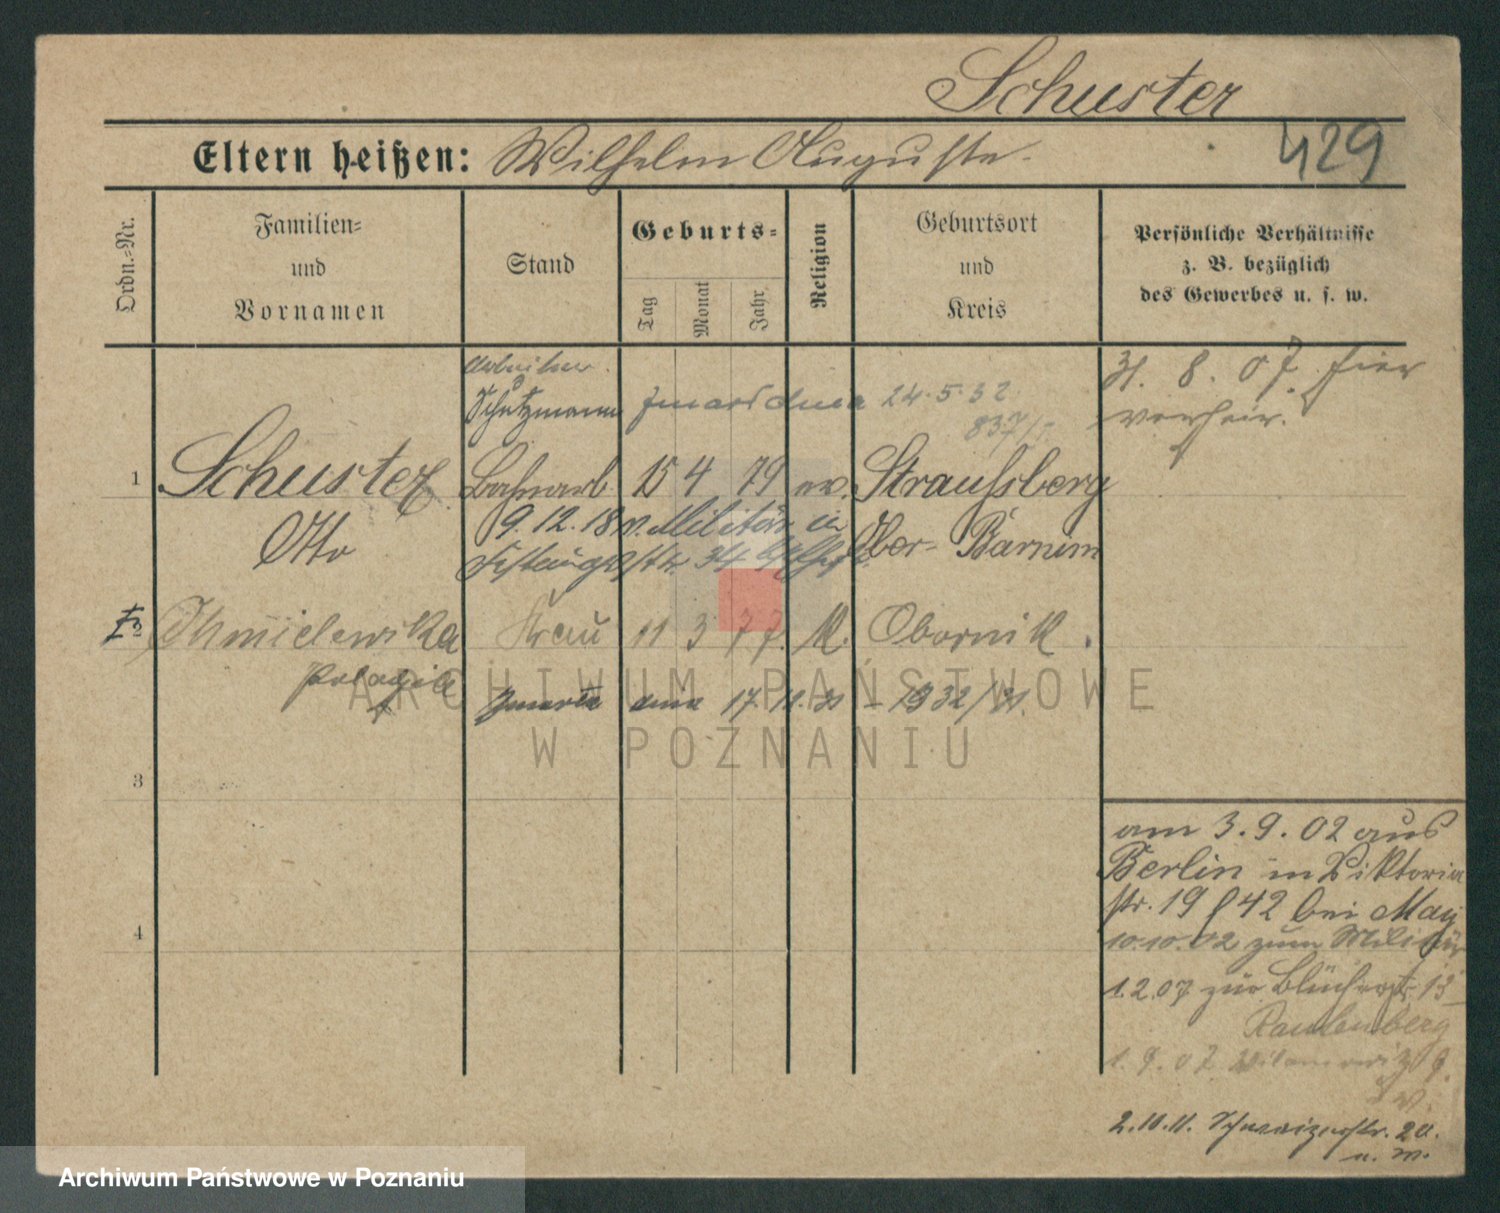 Schuster
Eltern heißen: Wilhelm Auguste. 429
Ordn.-Nr.
Familien-
und
Vornamen
Stand
Geburts-
Tag
Monat
Jahr
Religion
Geburtsort
und
Kreis
Persönliche Verhältnisse
z. B. bezüglich
des Gewerbes u. s. w.
Arbeiter.
Schutzmann zmarł dnia 24.5.32
837/
31. 8. 07. hier
verheir.
1 Schuster Bahnarb. 15 4 79 ev. Straußberg
Otto 9.12.18 v. Militär in Ober-Barnim
34
2 Chmielewska Frau 11 3 77. K. Obornik.
Pelagia
zmarła dnia 17.11.31 - 1932/31.
3
4
am 3.9.02 aus
Berlin in Viktoria
str. 19 42 bei May
10.10.02 zum Militär
1.2.07 zur Blücherstr. 13
1.9.07 9
2.10.11. 20.
u. m.
ARCHIWUM PAŃSTWOWE
W POZNANIU
Archiwum Państwowe w Poznaniu